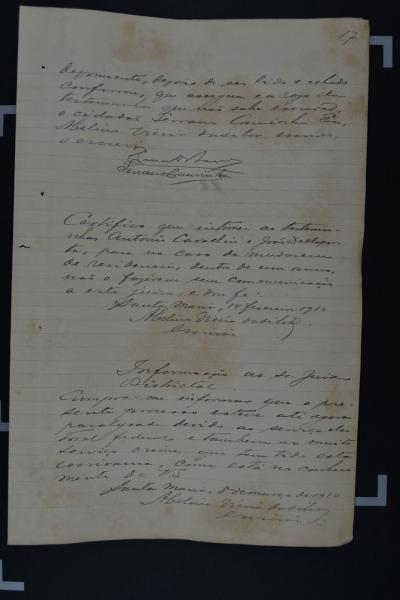 17
depoimento, depois de ser lido e achado
conforme, que assigna e a rogo da
testemunha que não sabe escrever,
o cidadão Caminha. Eu,
Abelino Vieira da Silva, escrivão
o escrevi.
Certifico que intimei as testemu-
nhas Antonio e João
para no caso de mudarem
de residencia, dentro de um anno,
não o fazerem sem communicação
a este juizo; e dou fé.
Santa Maria, 14 fevereiro 1910
Vieira da Silva
Escrivão
Informação ao Sr. Juiz
Districtal
Cumpre-me informar que o pre-
sente processo esteve até agora
paralysado devido ao serviço elei-
toral federal e tambem ao muito
serviço crime que tem tido esta
escrivania, como está no conheci-
mento de
Santa Maria, 8 de março de 1910
Vieira da Silva
Escrivão